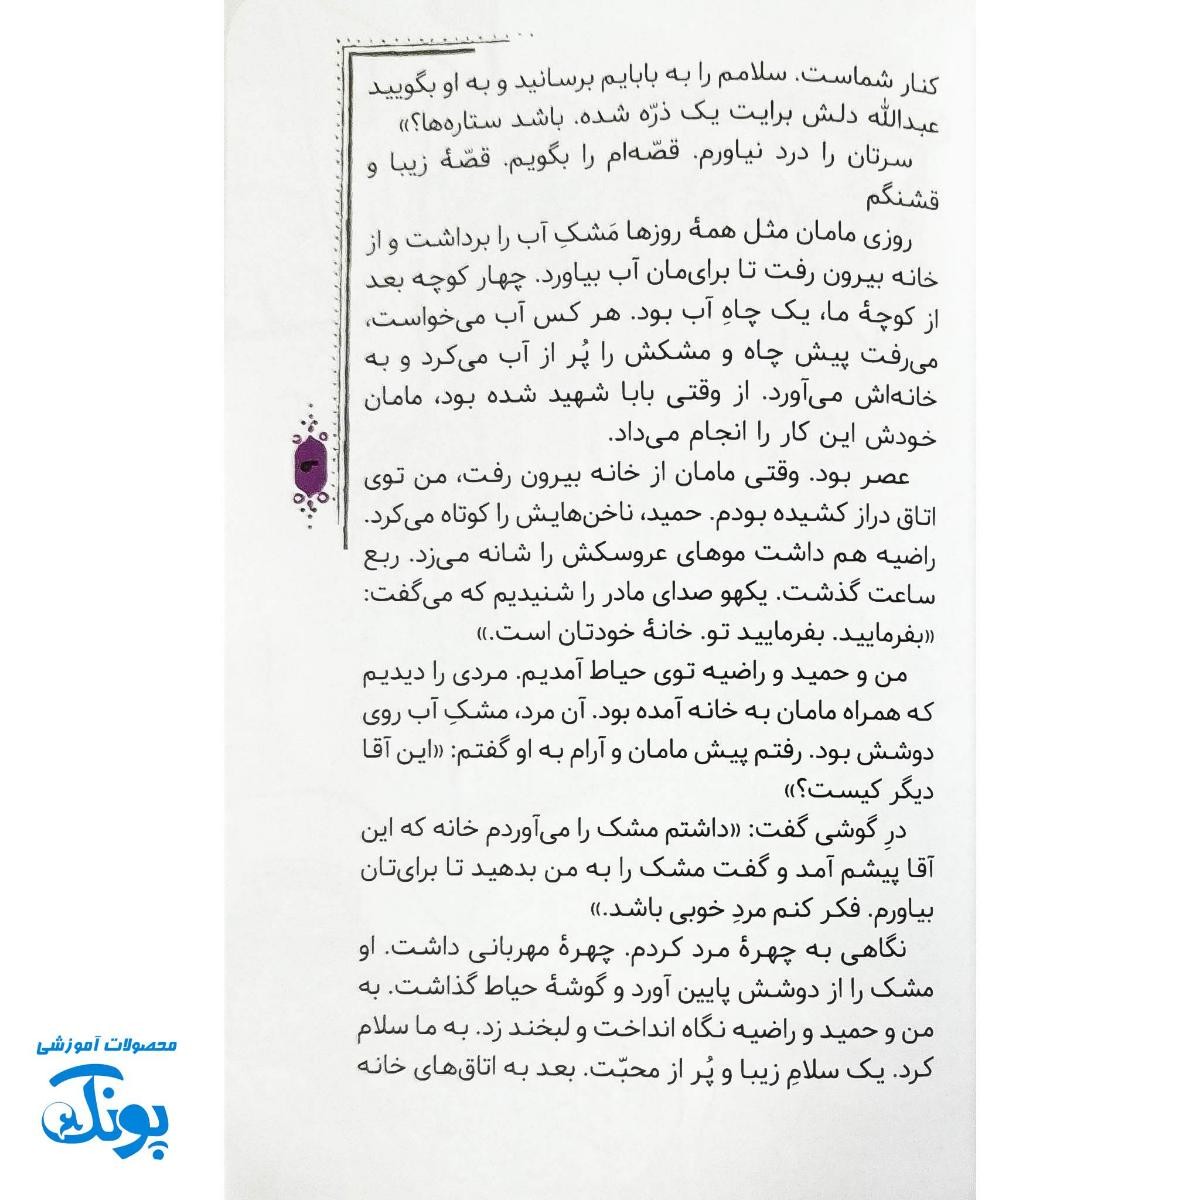 کنار شماست. سلامم را به بابایم برسانید و به او بگویید
عبدالله دلش برایت یک ذرّه شده. باشد ستاره‌ها؟»
سرتان را درد نیاورم. قصّه‌ام را بگویم. قصّهٔ زیبا و
قشنگم
روزی مامان مثل همهٔ روزها مَشکِ آب را برداشت و از
خانه بیرون رفت تا برای‌مان آب بیاورد. چهار کوچه بعد
از کوچهٔ ما، یک چاهِ آب بود. هر کس آب می‌خواست،
می‌رفت پیش چاه و مشکش را پُر از آب می‌کرد و به
خانه‌اش می‌آورد. از وقتی بابا شهید شده بود، مامان
خودش این کار را انجام می‌داد.
عصر بود. وقتی مامان از خانه بیرون رفت، من توی
اتاق دراز کشیده بودم. حمید، ناخن‌هایش را کوتاه می‌کرد.
راضیه هم داشت موهای عروسکش را شانه می‌زد. ربع
ساعت گذشت. یکهو صدای مادر را شنیدیم که می‌گفت:
«بفرمایید. بفرمایید تو. خانهٔ خودتان است.»
من و حمید و راضیه توی حیاط آمدیم. مردی را دیدیم
که همراه مامان به خانه آمده بود. آن مرد، مشکِ آب روی
دوشش بود. رفتم پیش مامان و آرام به او گفتم: «این آقا
دیگر کیست؟»
درِ گوشی گفت: «داشتم مشک را می‌آوردم خانه که این
آقا پیشم آمد و گفت مشک را به من بدهید تا برای‌تان
بیاورم. فکر کنم مردِ خوبی باشد.»
نگاهی به چهرهٔ مرد کردم. چهرهٔ مهربانی داشت. او
مشک را از دوشش پایین آورد و گوشهٔ حیاط گذاشت. به
من و حمید و راضیه نگاه انداخت و لبخند زد. به ما سلام
کرد. یک سلامِ زیبا و پُر از محبّت. بعد به اتاق‌های خانه
۹
محصولات آموزشی
پونک